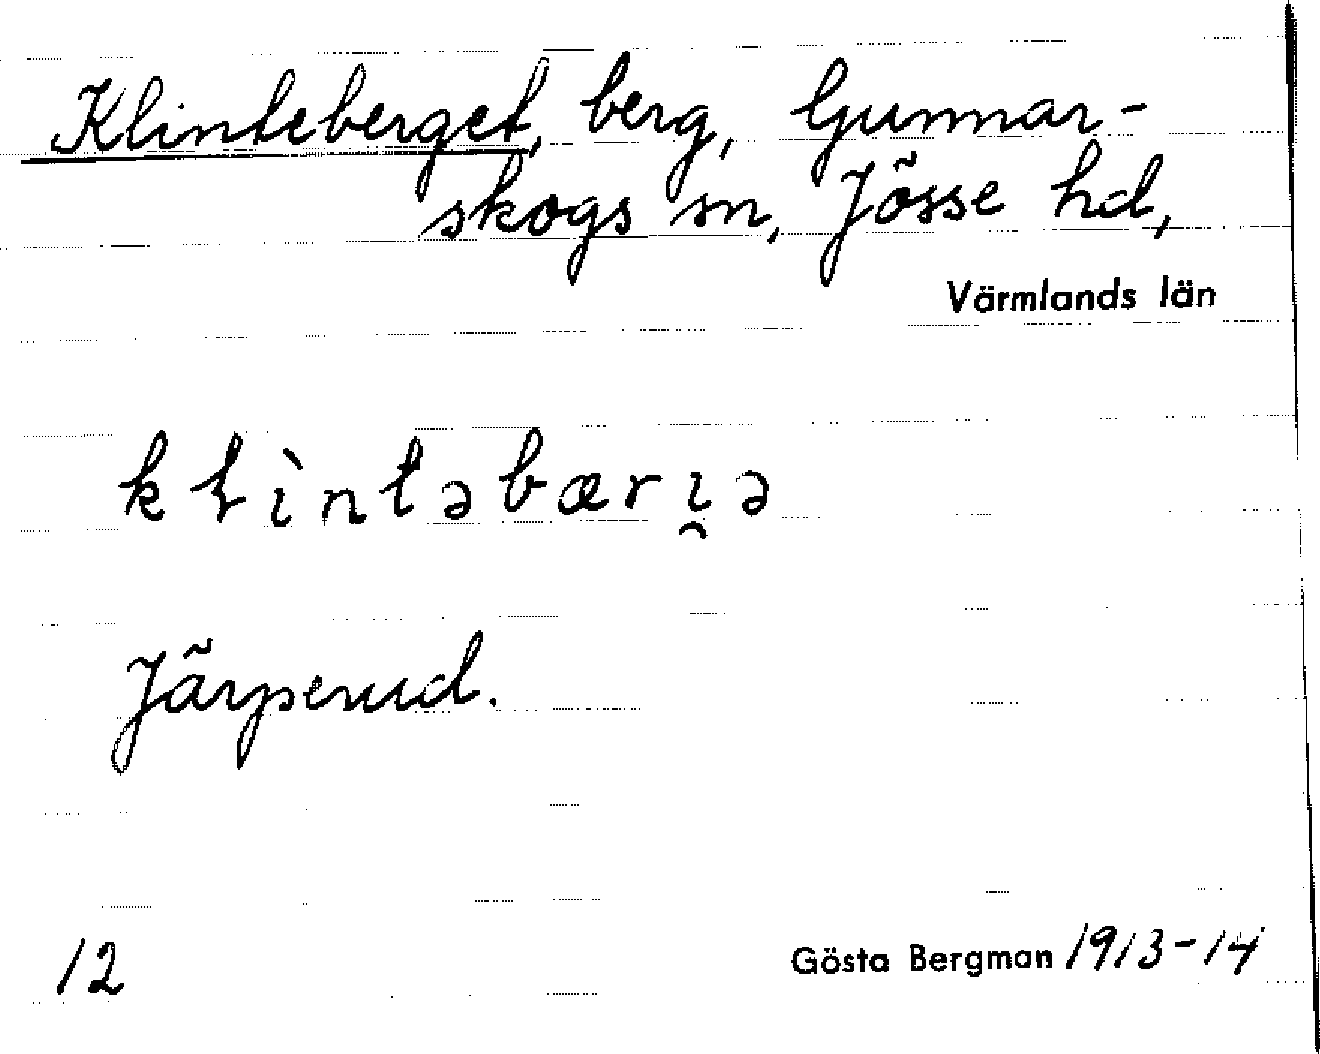 Klinteberget, berg, Gunnar-
skogs sn, Jösse hd,
Värmlands län
kłìntəbærı̯ə
Järperud.
12 Gösta Bergman 1913-14